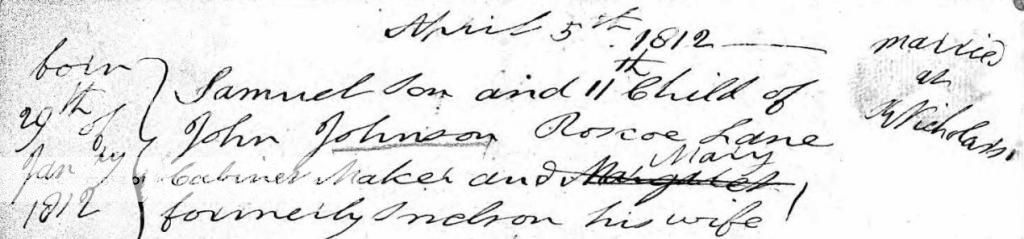 April 5th 1812
born
29th of
Jany
1812
Samuel Son and 11th Child of
John Johnson Roscoe Lane
Cabinet Maker and Margaret Mary
formerly Snelson his wife
married
at
St Nicholas